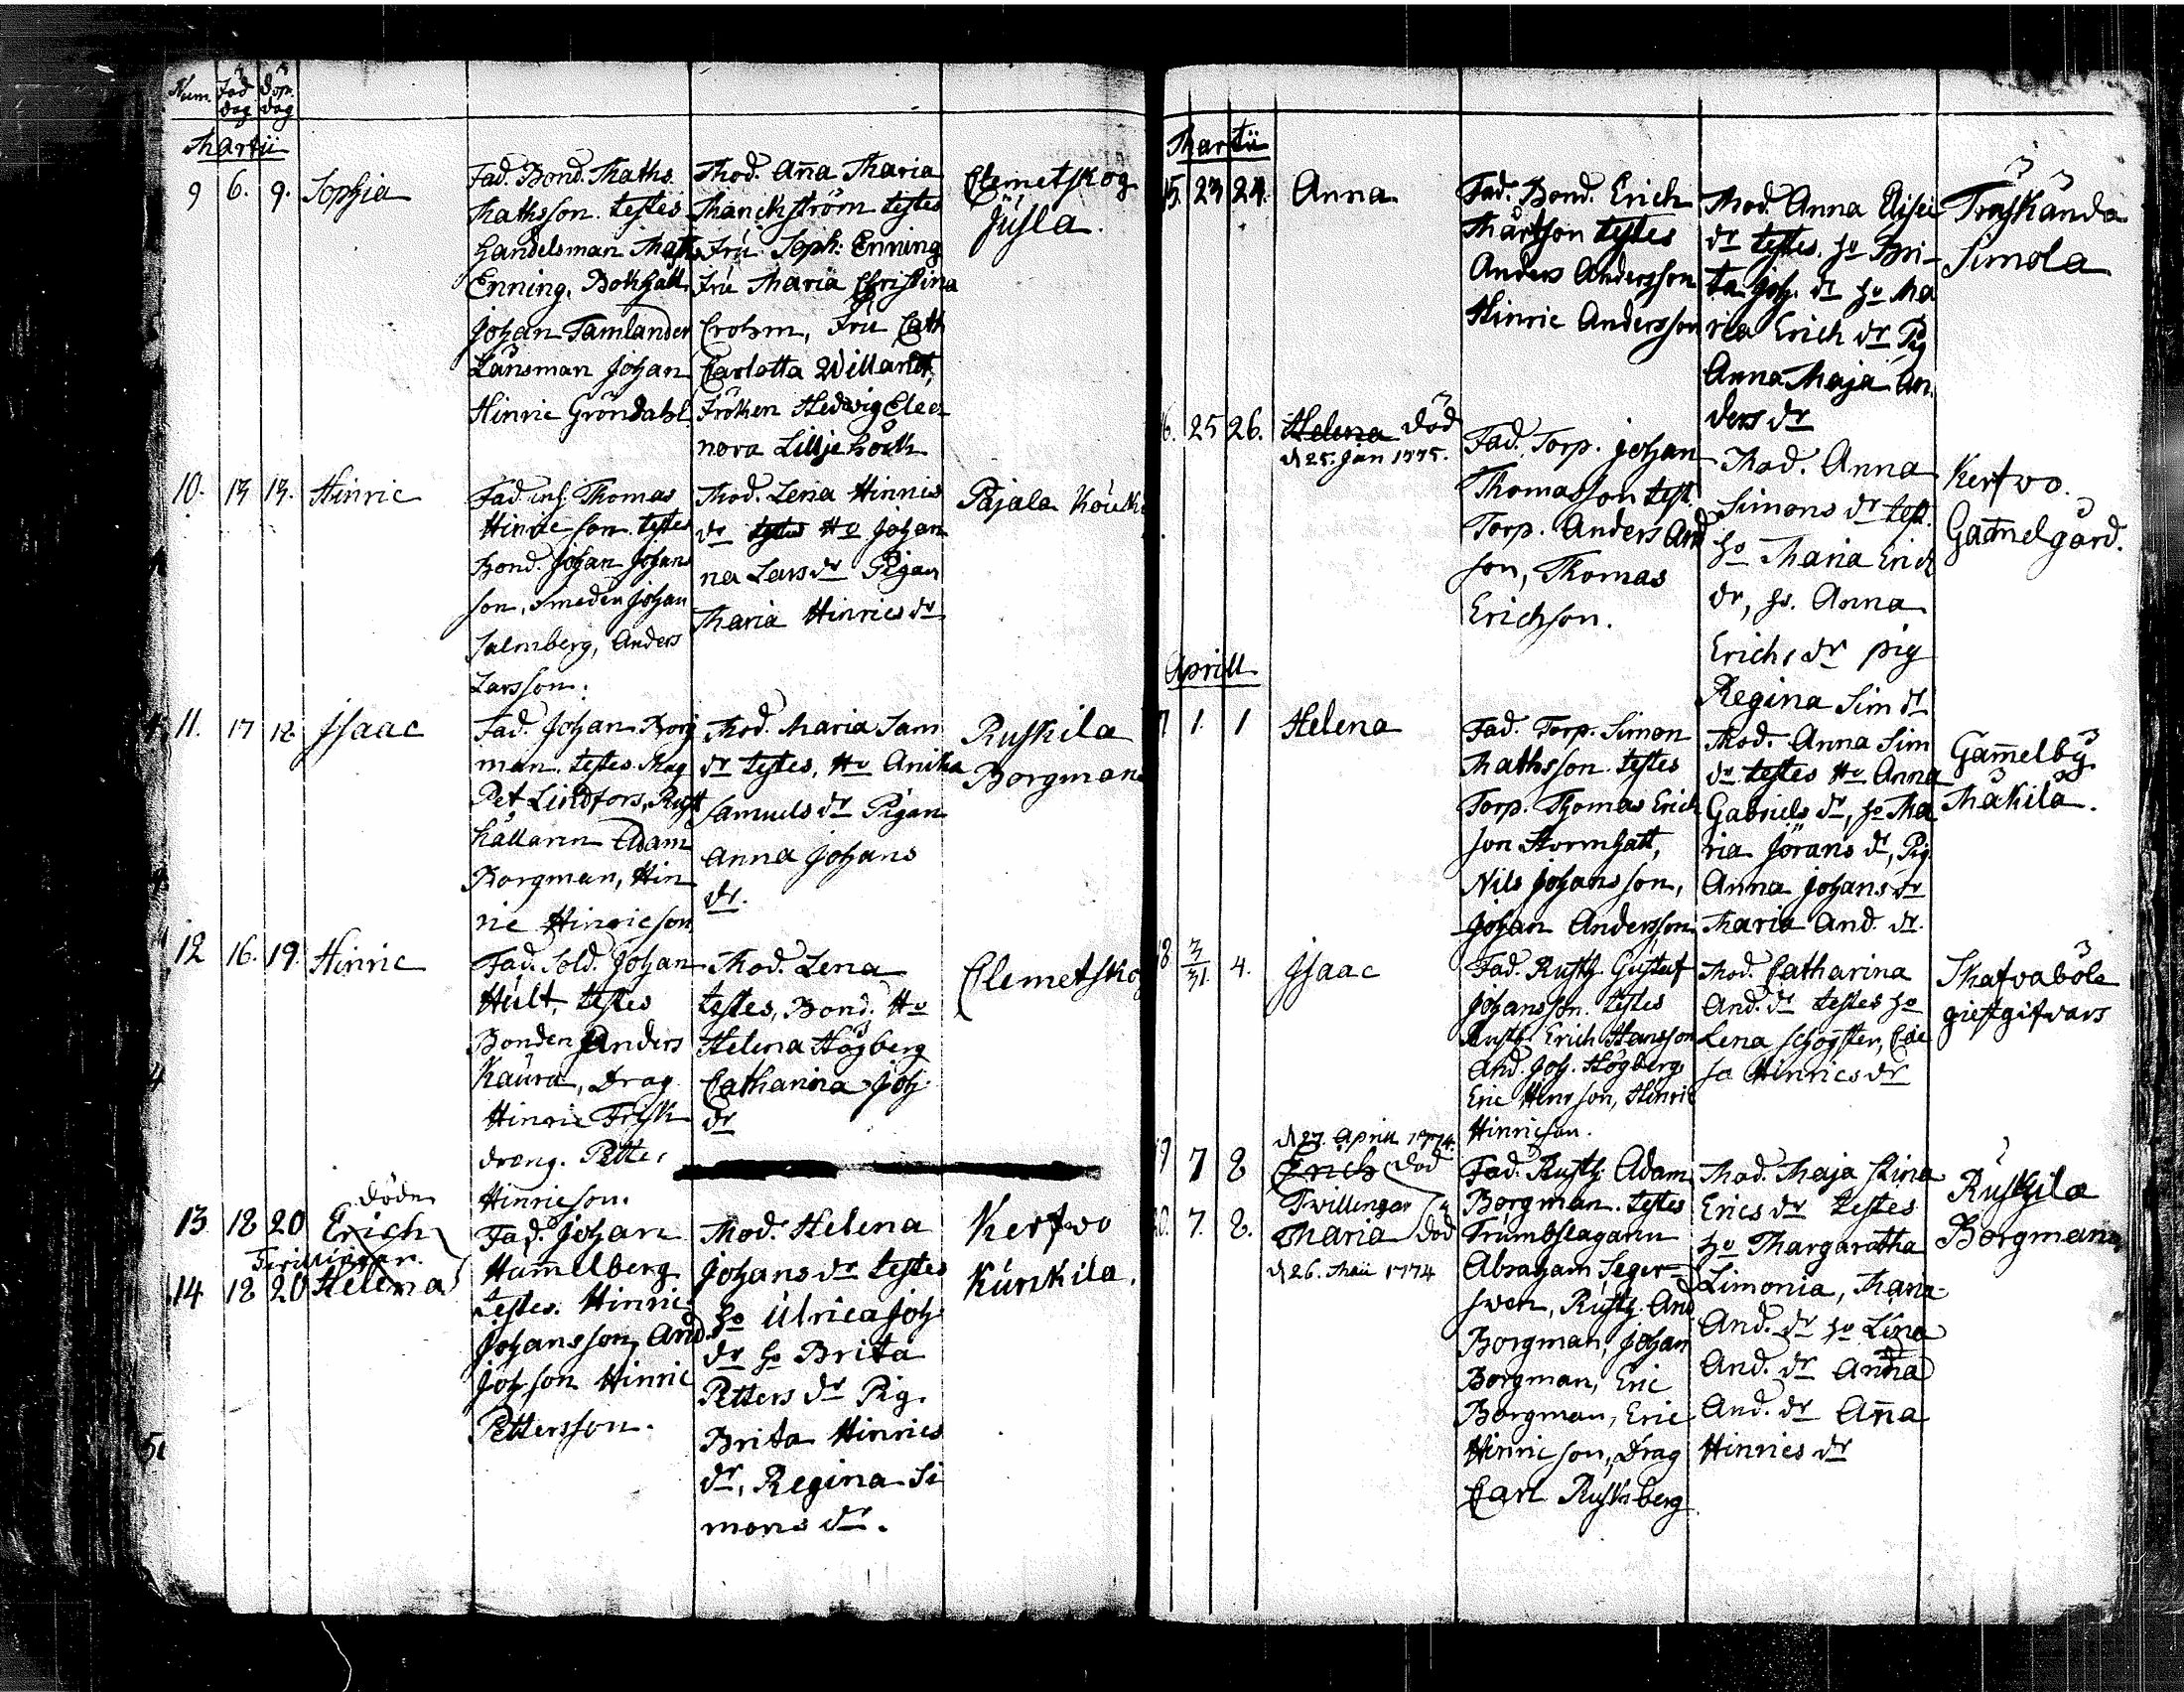 Num. Föd dag Döp. dag
Martii
9 6. 9. Sophia
Fad. Bond. Maths
Mathsson. testes
Handelsman Math
Enning, Bokhåll.
Johan Tamlander
Länsman Johan
Hinric Gröndahl.
Mod. Ana Maria
Manckström testes
Fru Soph. Enning
Fru Maria Christina
Crohm, Fru Cath
Carlotta Willandt,
Fröken Hedwig Eleo
nora Lillje höök
Clemetskog
Jusla.
10. 13 13. Hinric
Fad. inh. Thomas
Hinric son testes
Bond. Johan Johans
son, Smeden Johan
Salmberg, Anders
Larsson.
Mod. Lena Hinrics
dr testes Ho Johan
na Lars dr Pigan
Maria Hinrics dr
Pajala Kouki
11. 17 18 Isaac
Fad. Johan Borg
man. testes Mag
Pet Lindfors, Rust
hållarn Adam
Borgman, Hin
ric Hinricson
Mod. Maria Sam
dr testes, Ho Anika
Samuels dr Pigan
Anna Johans
dr.
Ruskila
Borgmans
12 16. 19. Hinric
Fad. Sold. Johan
Hult, testes
Bonden Anders
Kaura, Drag
Hinric Frisk
dreng. Petter
Hinricson.
Mod. Lena
testes, Bond. Ho
Helena Högberg
Catharina Joh
dr
Clemetskog
döde
13 18 20 Erich
Twillingar.
14 18 20 Helena
Fad. Johan
Hamelberg
testes. Hinric
Johansson, And.
Joh son Hinric
Pettersson.
Mod. Helena
Johans dr testes
ho Ulrica Joh
dr ho Brita
Petters dr Pig.
Brita Hinrics
dr, Regina Si
mons dr.
Kerfwo
Kunkila.
Martii
15. 23 24. Anna
Fad. Bond. Erich
Mårtson testes
Anders Andersson
Hinric Andersson
Mod. Anna
dr testes. ho Bri-
ta Joh. dr ho Ma
ria Erich dr Pig
Anna Maja An.
ders dr
Träskända
Simola
6. 25 26. Helena död
d 25. Jan 1775.
Fad. Torp. Johan
Thomasson test.
Torp. Anders And
son, Thomas
Erichson.
Mod. Anna
Simons dr test.
ho Maria Erich
dr, ho. Anna
Erichs dr pig
Regina Sim dr
Kerfwo.
Gamelgård.
Aprill
7 1. 1 Helena
Fad. Torp. Simon
Mathsson. testes
Torp. Thomas Erich
son Stormhatt,
Nils Johansson,
Johan Andersson
Mod. Anna Sim
dr testes Ho Anna
Gabriels dr, ho Ma
ria Jörans dr, Pig
Anna Johans dr
Maria And. dr.
Gamelby
Mäkilä.
18 3/31. 4. Isaac
Fad. Rusth. Gustaf
Johansson. testes
Rusth. Erich Hansson
And. Joh. Högberg
Eric Hinrson, Hinric
Hinricson.
Mod. Catharina
And. dr testes ho
Lena
Hinrics dr
Skafvaböle
giestgifvars
d 27. Aprill 1774.
19 7 8 Erich död
Twillingar
20. 7. 8. Maria död
d 26. Maii 1774
Fad. Rusth. Adam
Borgman. testes
Trumbslagarn
Abraham Seger-
sven, Rusth. And
Borgman, Johan
Borgman, Eric
Borgman, Eric
Hinricson, Drag
Carl Rusksberg
Mod. Maja Stina
Erics dr testes
ho Margaretha
Limonia, Maria
And. dr ho Lina
And. dr Anna
And. dr Ana
Hinrics dr
Ruskila
Borgmans